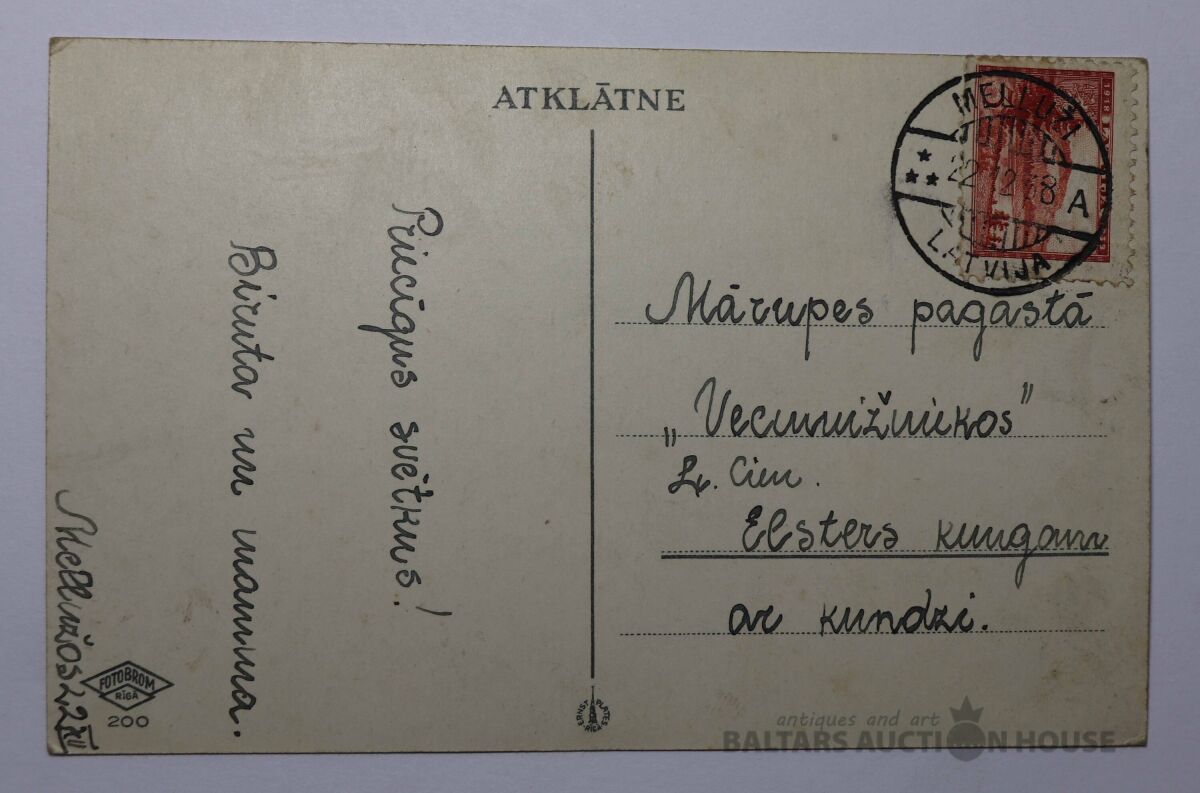 ATKLĀTNE
Priecīgus svētkus!
Biruta un mamma.
Mellužos 22 XII
FOTOBROM
RĪGĀ
200
ERNST PLATES
RĪGĀ
MELLUŽI
22 12 38
A
LATVIJA
1918
Mārupes pagastā
„Vecmuižniekos"
L. cien.
Elsters kungam
ar kundzi.
antiques and art
BALTARS AUCTION HOUSE